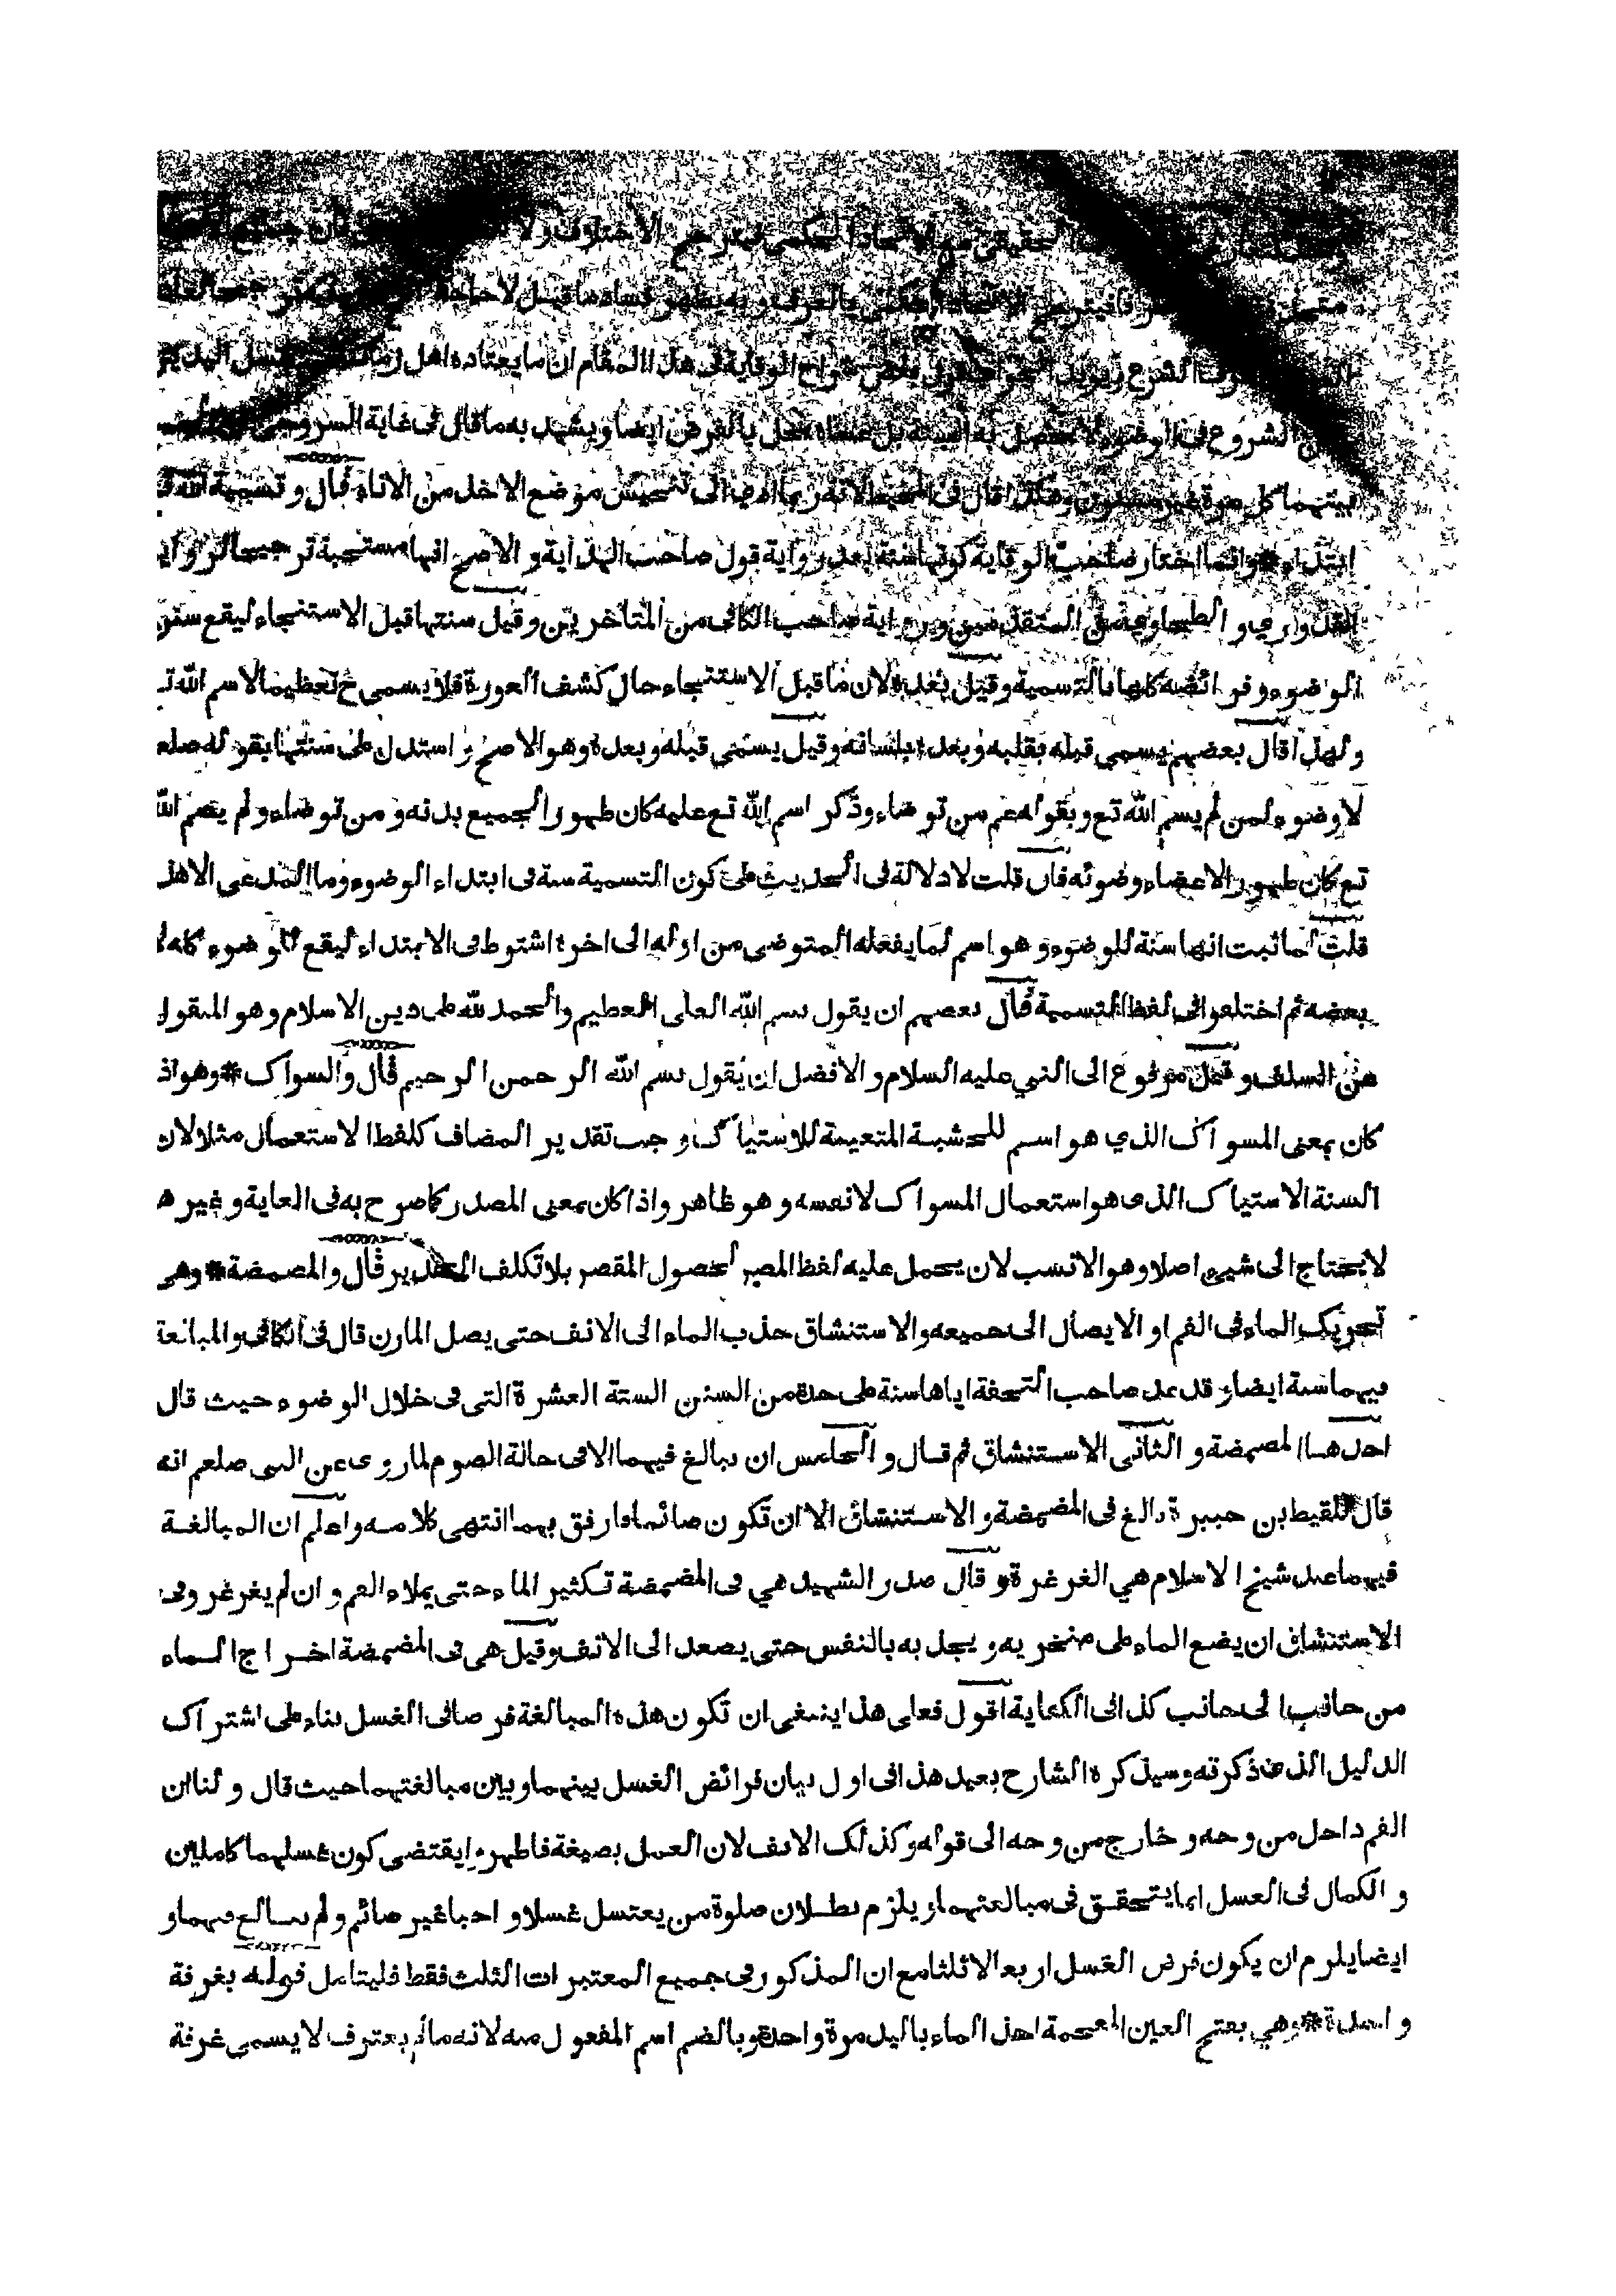 الحقيقي مع الاتحاد الحكمي فيدرجهم الاختلاف ولا
فيشترط الاتحاد الحكمي بالغرف وبه يظهر فساد ما قيل لا حاجة
الشرع ويؤيد الجواب قول بعض شراح الوقاية فى هذا المقام ان ما يعتاده اهل زماننا غسل اليدين
الشروع فى الوضوء لا تحصل به السنة بل عساه يخل بالفرض ايضا ويشهد به ما قال فى غاية السروجى
بيتهما كل مرة غير مسنون وهكذا قال فى المحيط لانه ربما ادى الى تنجيس موضع الاخذ من الاناء قال وتسمية الله
ابتداء * وانما اختار صاحب الوقاية كونها سنة بعد رواية قول صاحب الهداية والاصح انها مستحبة ترجيحا لرواية
القدوري والطحاوى من المتقدمين ورواية صاحب الكافى من المتاخرين وقيل سنتها قبل الاستنجاء ليقع سنن
الوضوء وفرائضه كلها بالتسمية وقيل بعده لان ما قبل الاستنجاء حال كشف العورة فلا يسمى ح تعظيما لاسم الله تـ
ولهذا قال بعضهم يسمى قبله بقلبه وبعده بلسانه وقيل يسمى قبله وبعده وهو الاصح واستدل على سنتها بقوله صلعم
لا وضوء لمن لم يسم الله تع وبقوله عم من توضاء وذكر اسم الله تع عليه كان طهورا لجميع بدنه ومن توضاء ولم يسم الله
تع كان طهورا لاعضاء وضوئه فان قلت لا دلالة فى الحديث على كون التسمية سنة فى ابتداء الوضوء وما المدعى الا هذا
قلت لما ثبت انها سنة للوضوء وهو اسم لما يفعله المتوضى من اوله الى اخره اشترط فى الابتداء ليقع الوضوء كله لا
بعضه ثم اختلعوا فى لفظ التسمية فقال بعضهم ان يقول بسم الله العلى العظيم والحمد لله على دين الاسلام وهو المنقول
عن السلف وقيل مرفوع الى النبي عليه السلام والافضل ان يقول بسم الله الرحمن الرحيم قال والسواك * وهو اذ
كان بمعنى المسواك الذي هو اسم للخشبة المتعينة للاستياك وجب تقدير المضاف كلفظ الاستعمال مثلا لان
السنة الاستياك الذى هو استعمال المسواك لا نفسه وهو ظاهر واذا كان بمعنى المصدر كما صرح به فى الغاية وغيره
لا يحتاج الى شيء اصلا وهو الانسب لان يحمل عليه لفظ المصر لحصول المقصر بلا تكلف التقدير قال والمضمضة * وهى
تحريك الماء فى الفم او الايصال الى جميعه والاستنشاق جذب الماء الى الانف حتى يصل المارن قال فى الكافى والمبالغة
فيهما سنة ايضا وقد عد صاحب التحفة اياها سنة على حدة من السنن الستة العشرة التى فى خلال الوضوء حيث قال
احدهما المضمضة والثانى الاستنشاق ثم قال والخامس ان يبالغ فيهما الا فى حالة الصوم لما روى عن النبى صلعم انه
قال للقيط بن صبرة بالغ فى المضمضة والاستنشاق الا ان تكون صائما فارفق بهما انتهى كلامه واعلم ان المبالغة
فيهما عند شيخ الاسلام هي الغرغرة وقال صدر الشهيد هي فى المضمضة تكثير الماء حتى يملاء الفم وان لم يغرغر وفى
الاستنشاق ان يضع الماء على منخريه ويجذبه بالنفس حتى يصعد الى الانف وقيل هى فى المضمضة اخراج الماء
من جانب الى جانب كذا فى الكفاية اقول فعلى هذا ينبغى ان تكون هذه المبالغة فرضا فى الغسل بناء على اشتراك
الدليل الذى ذكرته وسيذكره الشارح بعيد هذا فى اول بيان فرائض الغسل بينهما وبين مبالغتهما حيث قال ولنا ان
الفم داخل من وجه وخارج من وجه الى قوله وكذلك الانف لان العمل بصيغة فاطهروا يقتضى كون غسلهما كاملين
والكمال فى الغسل انما يتحقق فى مبالغتهما ويلزم بطلان صلوة من يغتسل غسلا واجبا غير صائم ولم يبالغ فيهما و
ايضا يلزم ان يكون فرض الغسل اربعا لا ثلثا مع ان المذكور فى جميع المعتبرات الثلث فقط فليتامل قوله بغرفة
واحدة * وهي بفتح الغين المعجمة اخذ الماء باليد مرة واحدة وبالضم اسم المفعول منه لانه ما لم يغترف لا يسمى غرفة